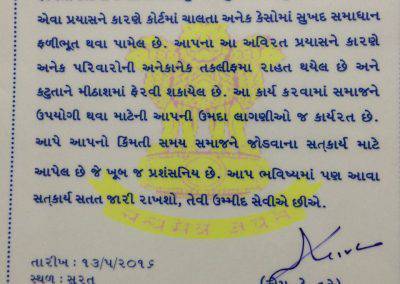 એવા પ્રયાસને કારણે કોર્ટમાં ચાલતા અનેક કેસોમાં સુખદ સમાધાન
ફળીભૂત થવા પામેલ છે. આપના આ અવિરત પ્રયાસને કારણે
અનેક પરિવારોની અનેકાનેક તકલીફમા રાહત થયેલ છે અને
કટુતાને મીઠાશમાં ફેરવી શકાયેલ છે. આ કાર્ય કરવામાં સમાજને
ઉપયોગી થવા માટેની આપની ઉમદા લાગણીઓ જ કાર્યરત છે.
આપે આપનો કિંમતી સમય સમાજને જોડવાના સત્કાર્ય માટે
આપેલ છે જે ખૂબ જ પ્રશંસનિય છે. આપ ભવિષ્યમાં પણ આવા
સત્કાર્ય સતત જારી રાખશો, તેવી ઉમ્મીદ સેવીએ છીએ.
सत्यमेव जयते
તારીખ : ૧૩/૫/૨૦૧૬
સ્થળ : સુરત